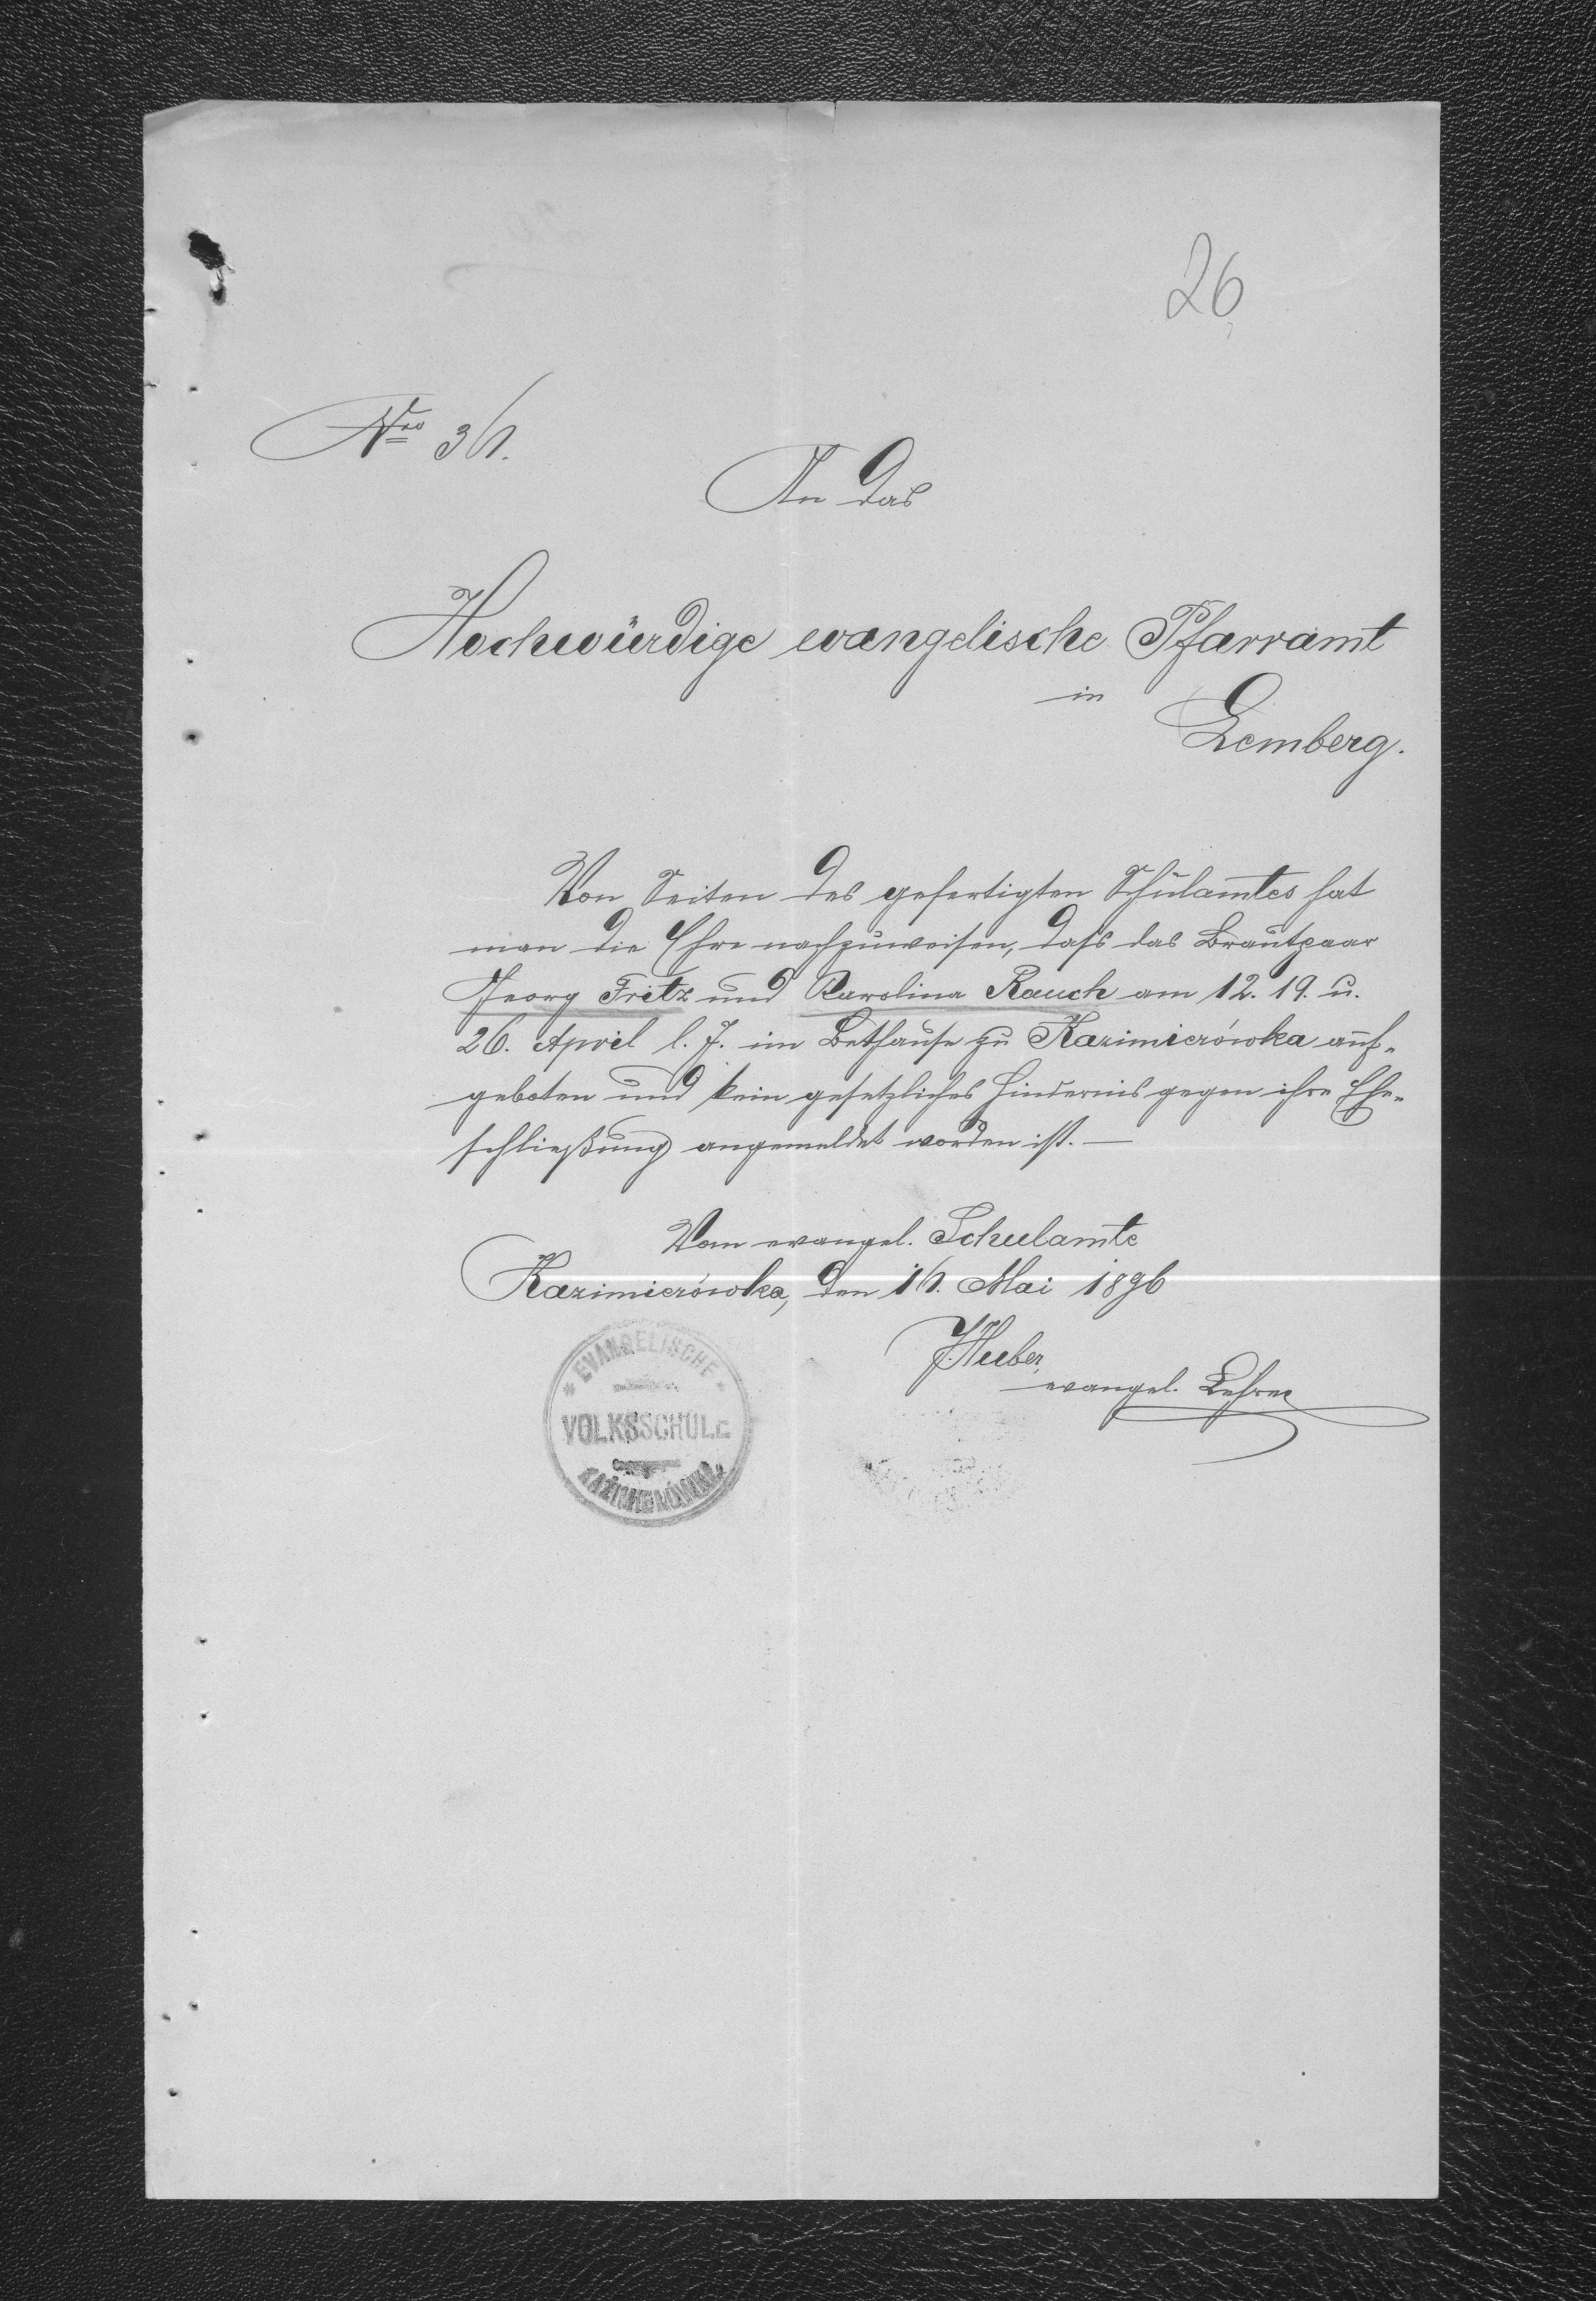 26
Nro 34.
An das
Hochwürdige evangelische Pfarramt
in
Lemberg.
Von Seiten des gefertigten Schulamtes hat
man die Ehre nachzuweisen, dass das Brautpaar
Georg Fritz und Karolina Rauch am 12. 19. u.
26. April l. J. im Bethause zu Kazimierówka auf-
geboten und kein gesetzliches Hindernis gegen ihre Ehe-
schließung angemeldet worden ist. —
Vom evangel. Schulamte
Kazimierówka, den 14. Mai 1896
J. Huber,
evangel. Lehrer
* EVANGELISCHE *
VOLKSSCHULE
KAZIMIERÓWKA